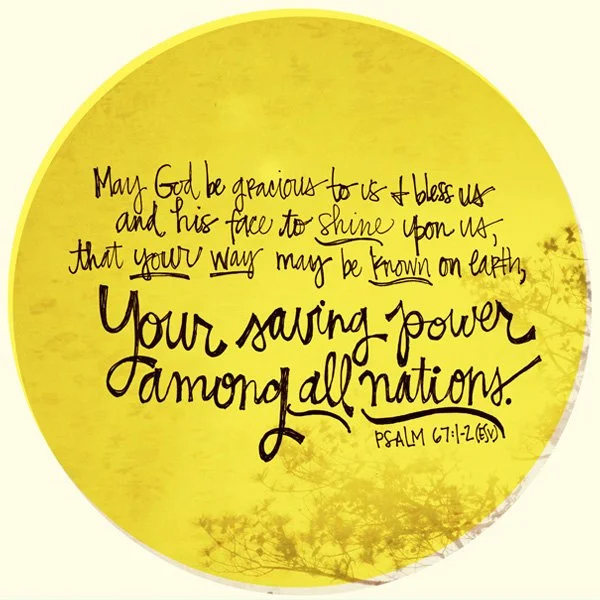 May God be gracious to us + bless us
and his face to shine upon us,
that your way may be known on earth,
Your saving power
among all nations.
PSALM 67:1-2 (ESV)